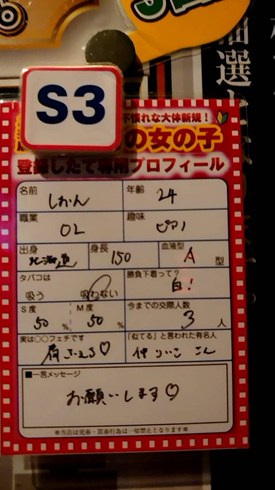 S3
不慣れな大体新規！
の女の子
登録したて専用プロフィール
名前 しおん 年齢 24
職業 OL 趣味 ピアノ
出身 北海道 身長 150 血液型 A 型
タバコは 吸う 吸わない 勝負下着って？ 白！
S度 50 % M度 50 % 今までの交際人数 3 人
実は○○フェチです 「似てる」と言われた有名人
■一言メッセージ
お願いします♡
抽選